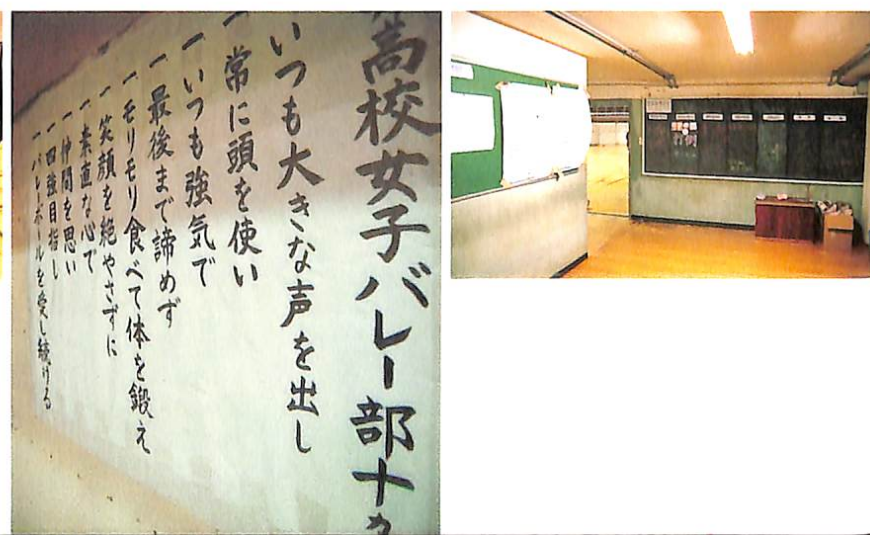 高校女子バレー部十ヶ
いつも大きな声を出し
一常に頭を使い
一いつも強気で
一最後まで諦めず
一モリモリ食べて体を鍛え
一笑顔を絶やさずに
一素直な心で
一仲間を思い
一四強目指し
一バレーボールを愛し続ける